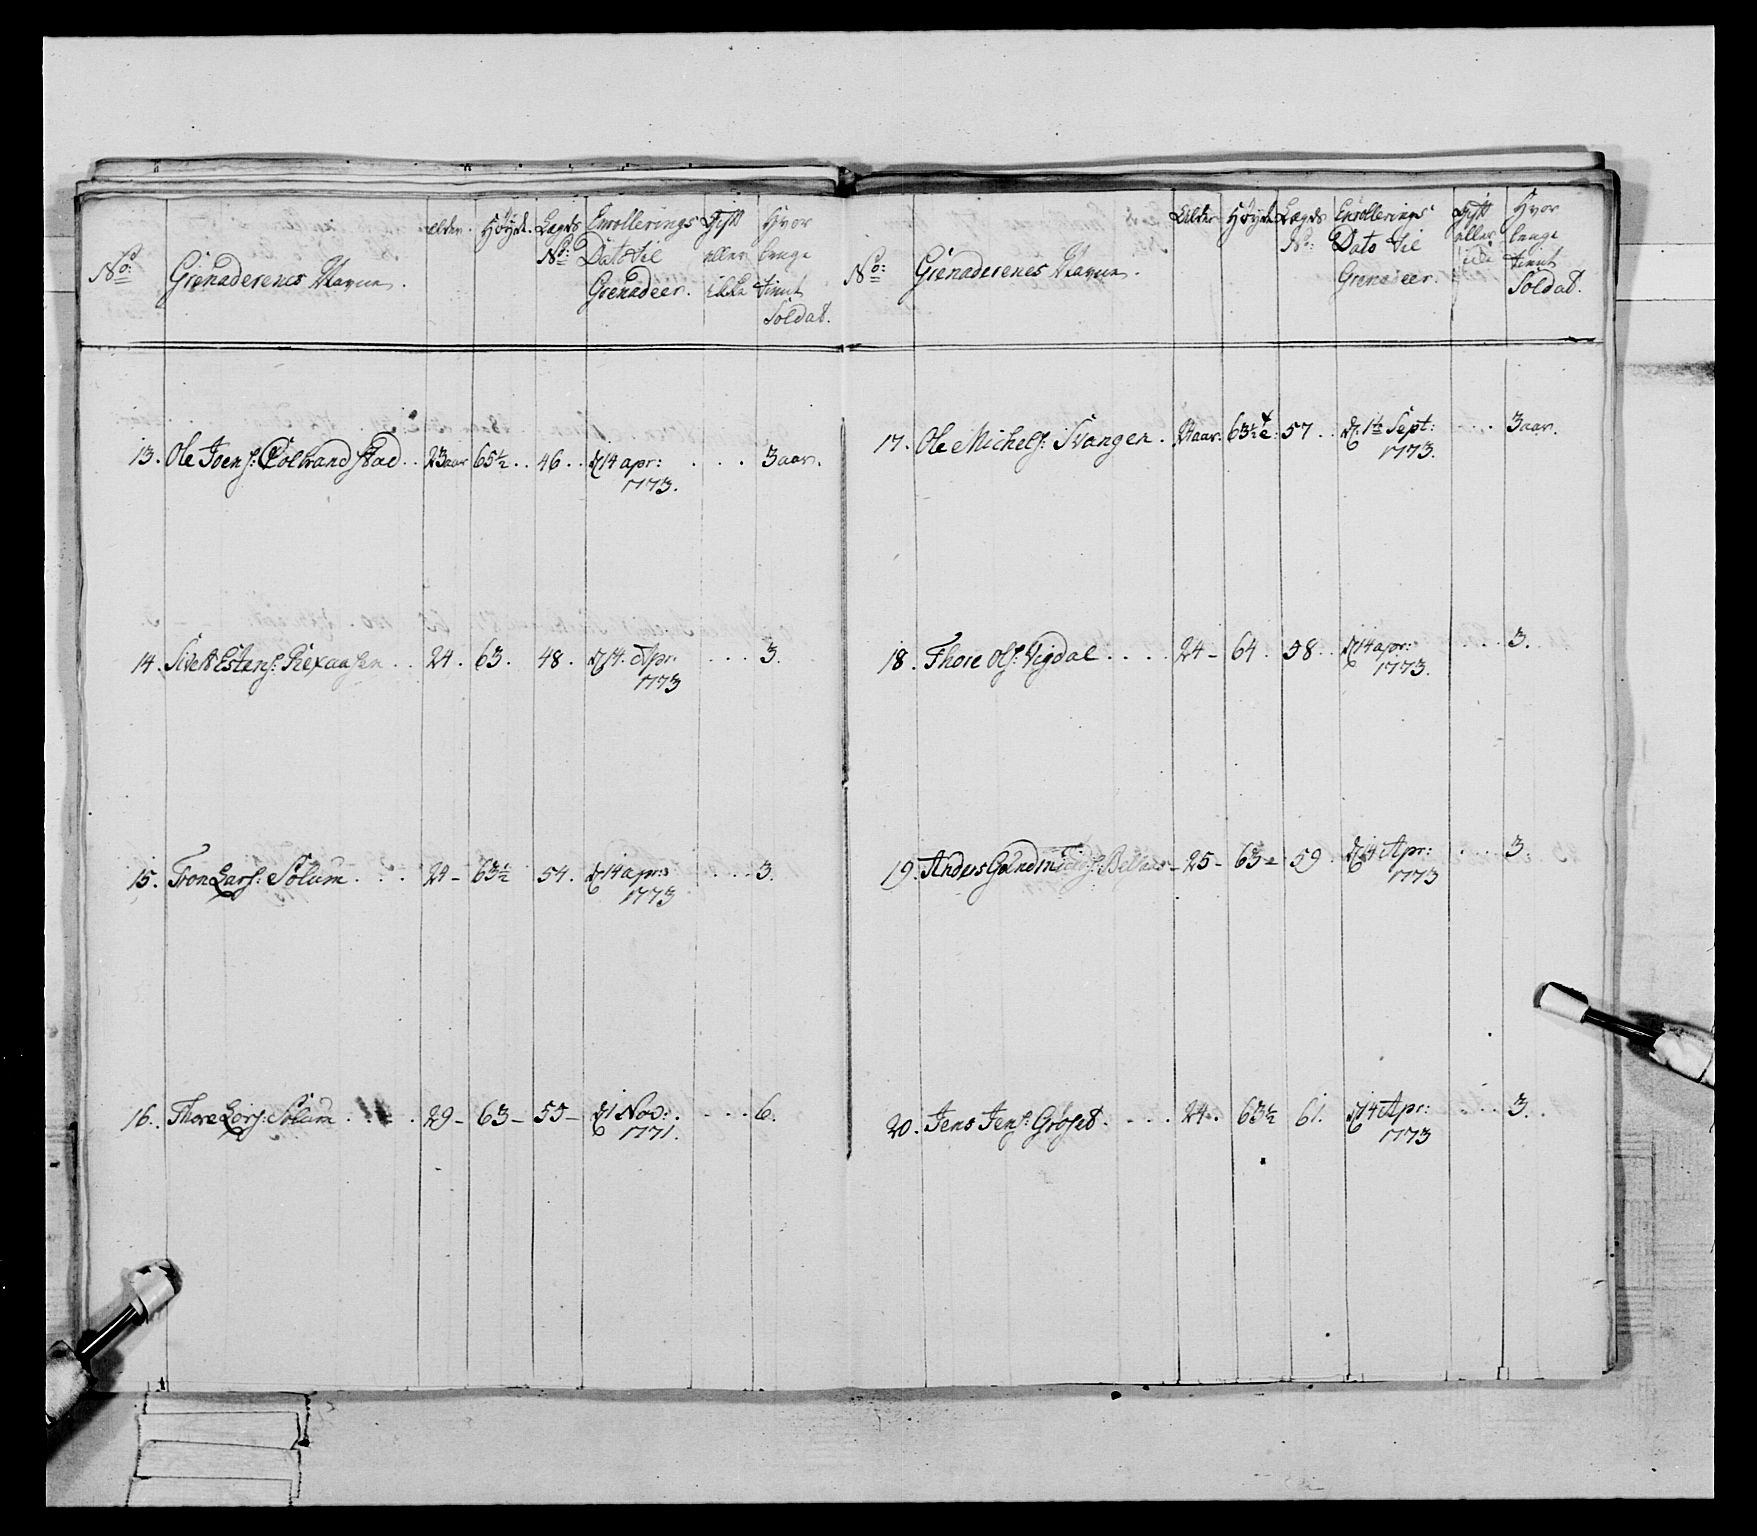 No: Grenaderenes Navne. alder. Høyde. Lægds No: Enrollerings Dato til Grenadeer. Gift eller ikke Hvor lenge tient Soldat.
13. Ole Joens: Colbrandstad .. 23 aar 65½ .. 46 .. d 14 apr: . . . 3 aar.
1773.
14. Sivert Estens: .. 24. 63. 48. d 14. Apr. . . . 3.
1773
15. Tron Lars: Solum . . . 24 - 63½ 54. d 14 apr: . . . . 3.
1773
16. Thore Lars: Solum . . . 29 - 63 - 55 - d 1 Nov: . . . . 6.
1771.
No: Grenaderenes Navne. Alder Høyde Lægds No: Enrollerings Dato til Grenadeer. Gift eller Hvor lenge tient Soldat.
17. Ole Michels: Svangen . aar. 63½ 57 .. d 1te Sept: . . . 3 aar.
1773.
18. Thore Ols: Vigdal . . . . 24 - 64. 58 .. d 14 apr: . . . 3.
1773.
19. Anders - 25 - 63 - 59 d 14 Apr: . . . 3.
1773
20. Jens Jens: Grøset . . . . 24. 63½ 61. d 14 Apr: . . . 3.
1773